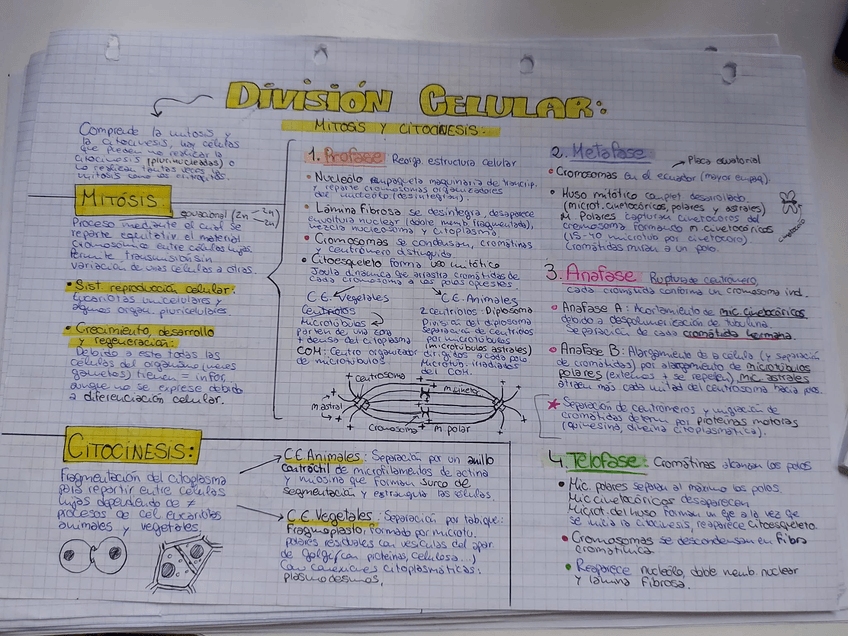 DIVISIÓN CELULAR:
MITOSIS Y CITOCINESIS.
Comprende la mitosis y
la citocinesis, hay células
que pueden no realizar la
citocinesis (plurinucleadas) o
no realizar tantas veces
mitosis como
MITÓSIS
ecuacional (2n 2n 2n)
Proceso mediante el cual se
reparte equitativ. el material
cromosómico entre células hijas.
Permite transmisión sin
variación de unas células a otras.
• Sist. reproducción celular:
Eucariotas unicelulares y
algunos organ. pluricelulares.
• Crecimiento, desarrollo
y regeneración:
Debido a esto todas las
células del organismo (menos
gametos) tienen = infor.
aunque no se exprese debido
a diferenciación celular.
1. Profase Reorga estructura celular
• Nucleólo empaqueta maquinaria de transcrip.
y reparte cromosomas organizadores
del nucleólo (desintegran).
• Lámina fibrosa se desintegra, desaparece
envoltura nuclear (doble memb fragmentada),
mezcla nucleosoma y citoplasma
• Cromosomas se condensan, cromátinas
y centrómero distinguido.
• Citoesqueleto forma uso mitótico
Jaula dinámica que arrastra cromátidas de
cada cromosoma a los polos opuestos.
C.E. Vegetales
Centriolos
Microtúbulos
parten de una zona
+ densa del citoplasma
COM: Centro organizador
de microtúbulos.
C.E. Animales
2 centriolos: Diplosoma
División del diplosoma
Separación de centriolos
por microtúbulos
(microtúbulos astrales)
dirigidos a cada polo
Microtúb. irradiados
del COM.
centrosoma
m. cinetoc
m astral
Cromosoma
m. polar
2. Metafase
Placa ecuatorial
• Cromosomas en el ecuador (mayor empaq).
• Huso mitótico complet desarrollado
(microt. cinetocóricos, polares y astrales)
M Polares capturan cinetocoros del
cromosoma formando m cinetocóricos
(15-40 microtub por cinetocoro).
Cromátidas miran a un polo.
cinetocoro
3. Anafase Ruptura de centrómero,
cada cromátida conforma un cromosoma ind.
• Anafase A: Acortamiento de mic cinetocóricos
debido a despolimerización de tubulina.
Separación de cada cromátida hermana.
• Anafase B: Alargamiento de a célula (y separación
de cromátidas) por alargamiento de microtúbulos
polares (externos + se repelen), mic astrales
atraen más cada unidad del centrosoma hacia polos.
* Separación de centrómeros y migración de
cromátidas determ por proteínas motoras
(quinesina, dineína citoplasmática).
4. Telofase: Cromátinas alcanzan los polos
• Mic. polares separan al máximo los polos.
Mic cinetocóricos desaparecen
Microt. del huso forman un eje a la vez que
se inicia la citocinesis, reaparece citoesqueleto.
• Cromosomas se descondensan en Fibra
cromatínica.
• Reaparece nucleólo, doble memb. nuclear
y lámina fibrosa.
CITOCINESIS:
Fragmentación del citoplasma
para repartir entre células
hijas dependiendo de ≠
procesos de cel. eucariotas
animales y vegetales.
C.E Animales: Separación por un anillo
contráctil de microfilamentos de actina
y miosina que forman surco de
segmentación y estrangula las células.
C.E. Vegetales: Separación por tabique:
Fragmoplasto, formado por microtu.
polares residuales con vesículas del apar.
de golgi (con proteínas, celulosa...)
Con conexiones citoplasmáticas:
plasmodesmos.